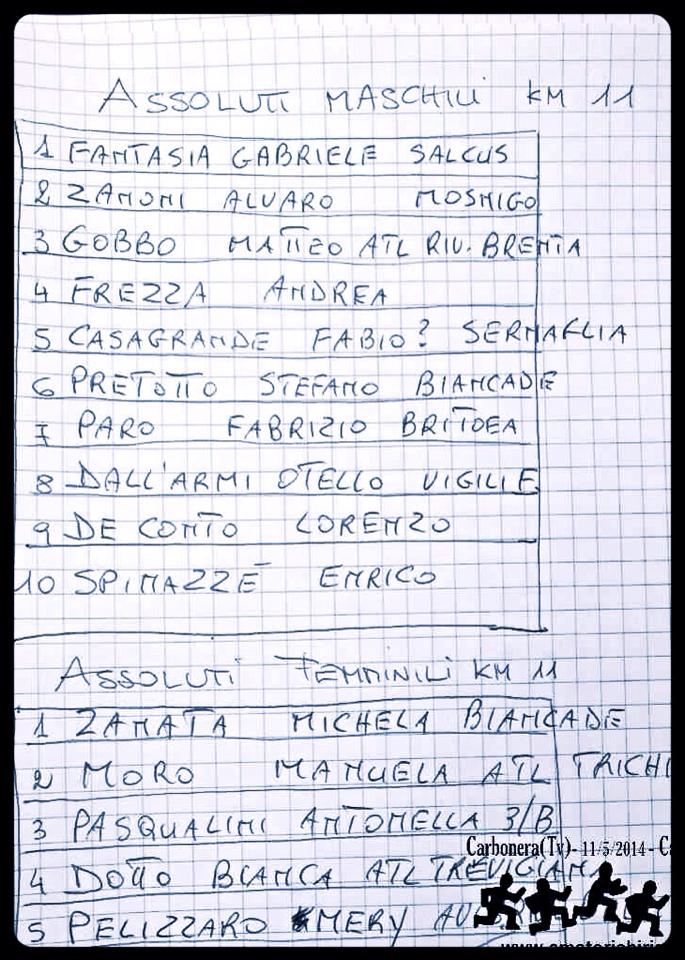 ASSOLUTI MASCHILI KM 11
1 FANTASIA GABRIELE SALCUS
2 ZANONI ALVARO MOSNIGO
3 GOBBO MATTEO ATL RIV. BRENTA
4 FREZZA ANDREA
5 CASAGRANDE FABIO? SERNAGLIA
6 PRETOTTO STEFANO BIANCADE
7 PARO FABRIZIO BRITOEA
8 DALL'ARMI OTELLO VIGILI E
9 DE CONTO LORENZO
10 SPINAZZÈ ENRICO
ASSOLUTI FEMMINILI KM 11
1 ZANATA MICHELA BIANCADE
2 MORO MANUELA ATL TRICHI
3 PASQUALINI ANTONELLA 3/B
Carbonera(Tv)- 11/5/2014 - Ca
4 DOTTO BIANCA ATL TREVIGIAN
5 PELIZZARO MERY